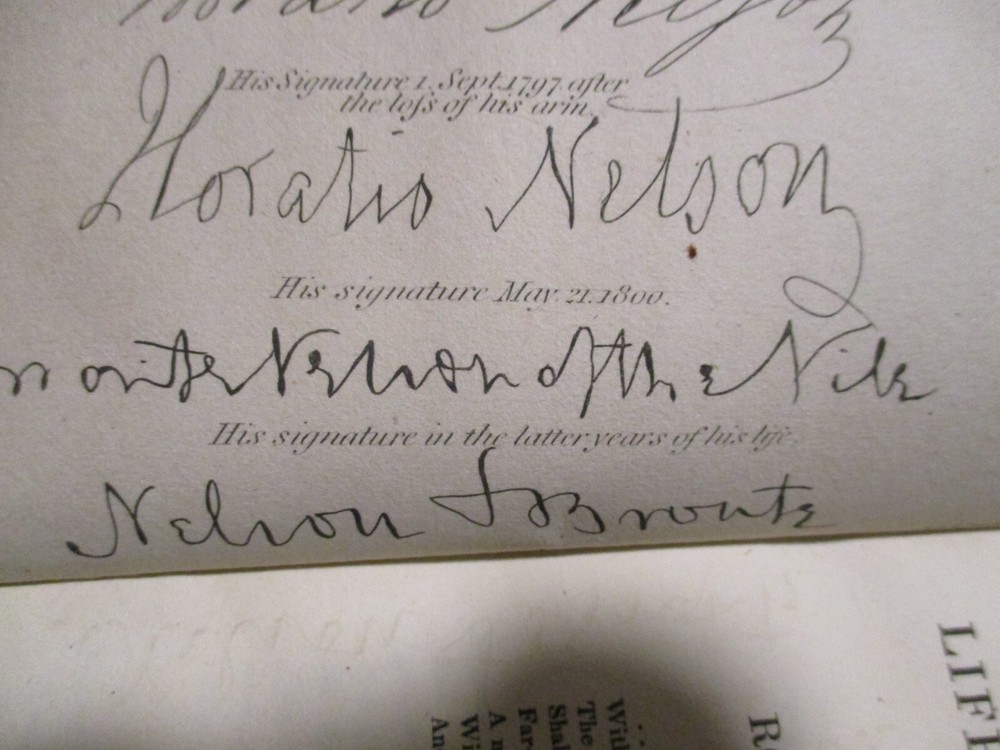 Horatio Nelson
His Signature 1. Sept. 1797. after
the loſs of his arm.
Horatio Nelson
His signature May. 21. 1800.
Bronte Nelson of the Nile
His signature in the latter years of his life.
Nelson & Bronte
LIF
R
With
The
Shal
Far
A
Wi
An